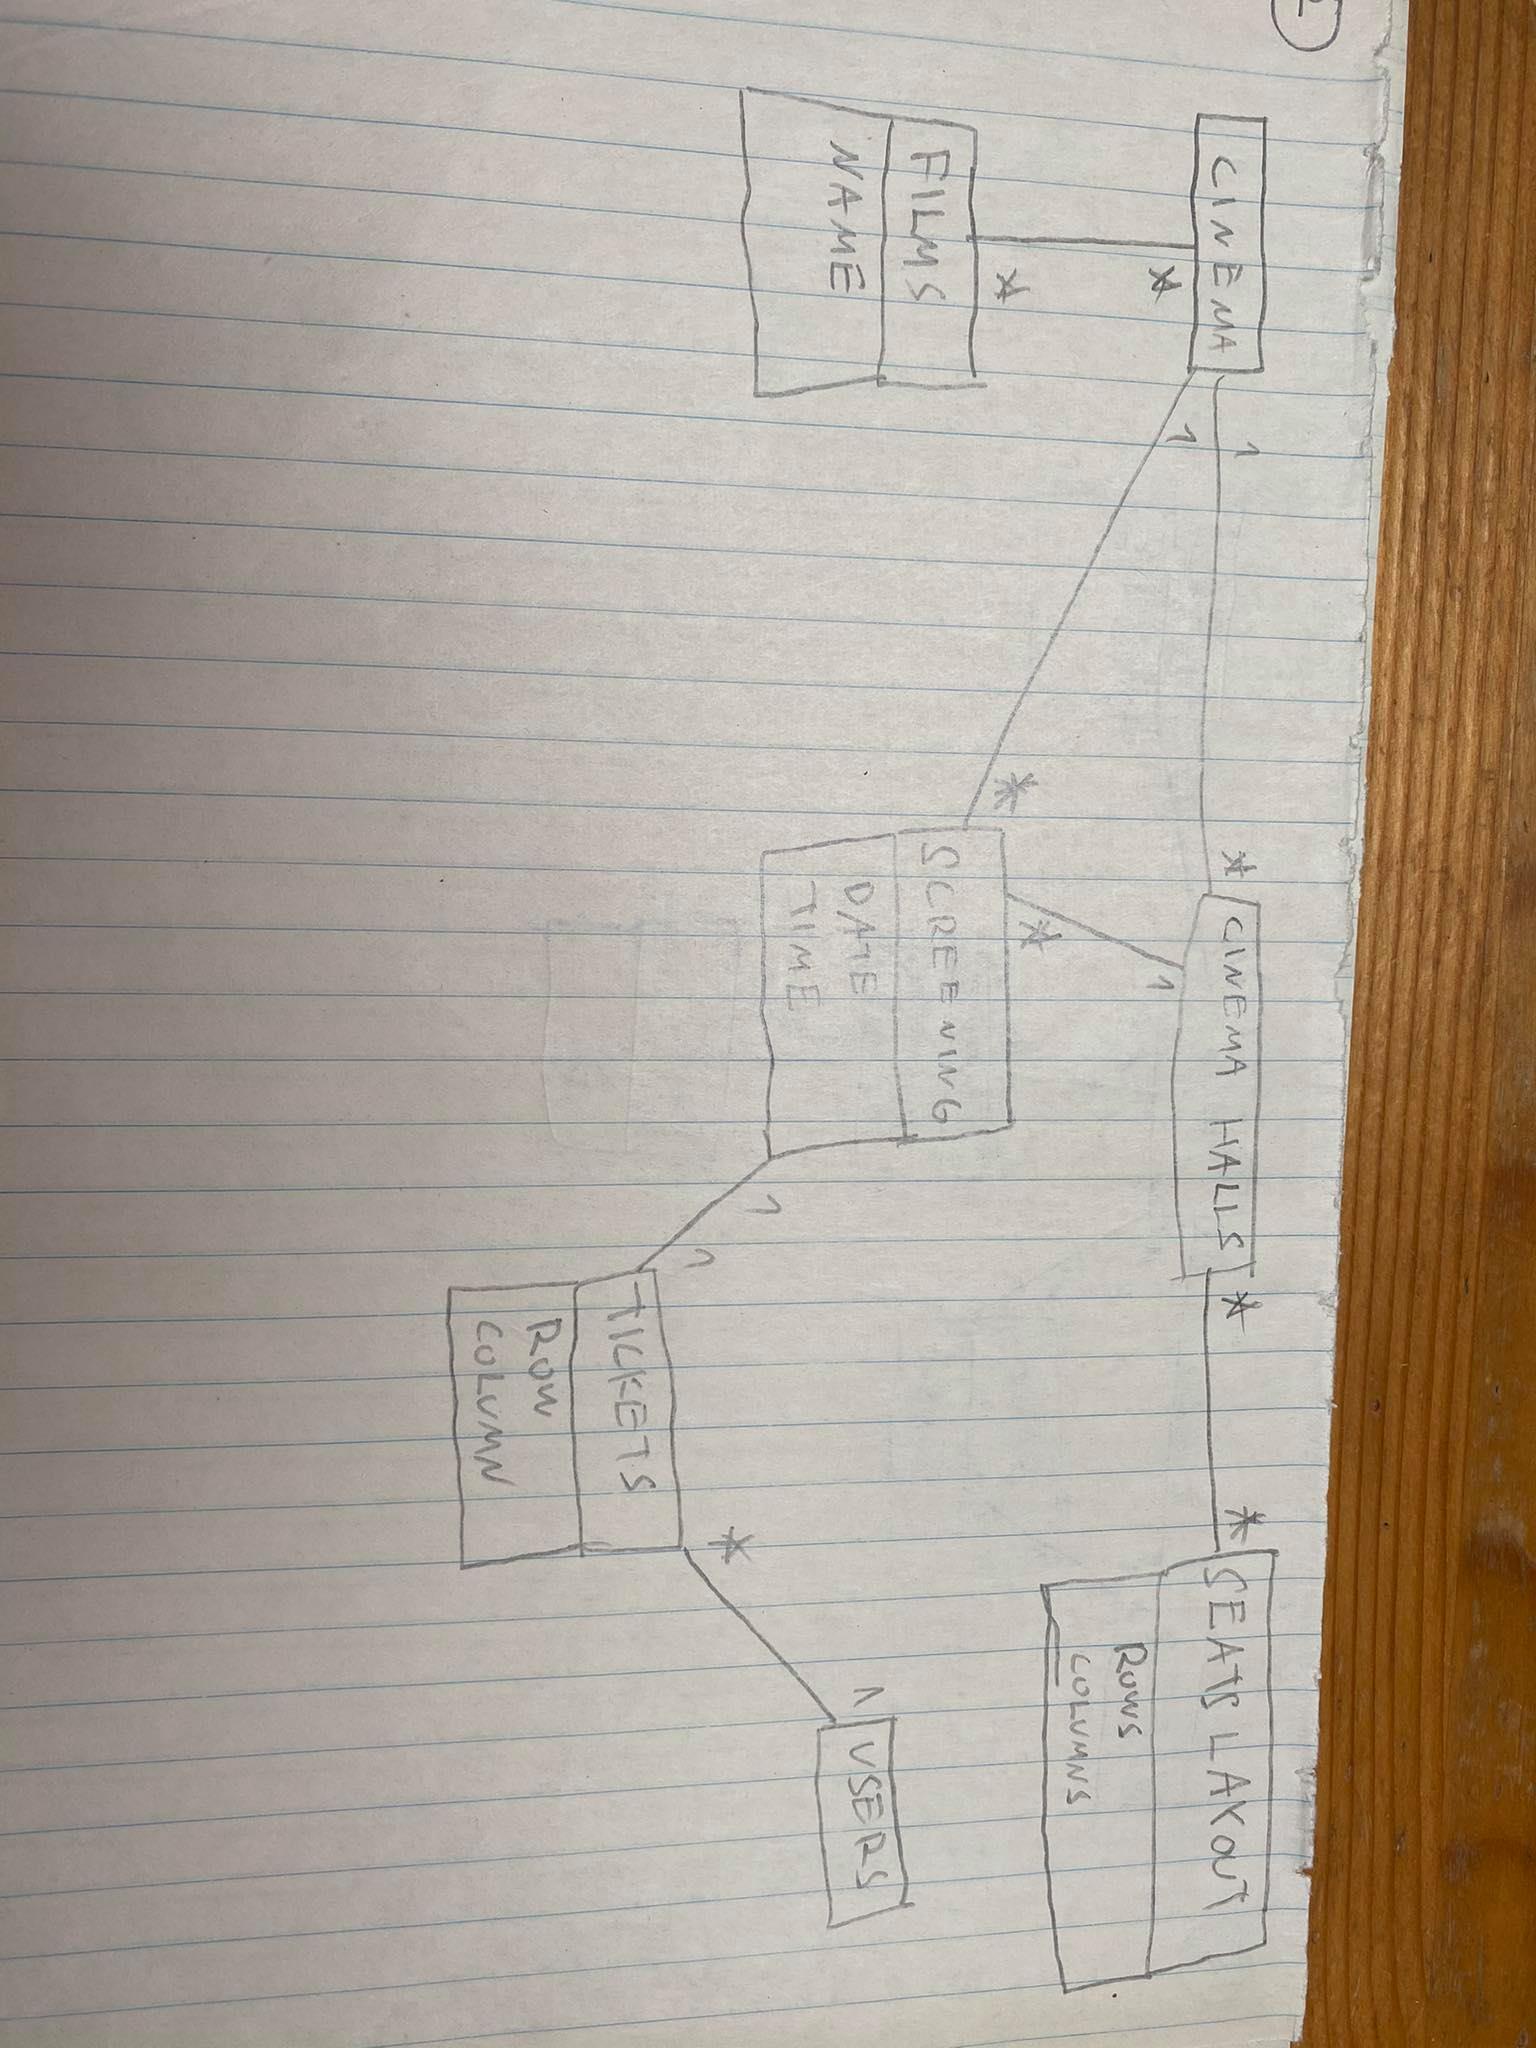 CINEMA
1
*
CINEMA HALLS
*
*
SEATS LAYOUT
ROWS
COLUMNS
*
1
1
*
*
*
FILMS
NAME
SCREENING
DATE
TIME
1
USERS
1
1
*
TICKETS
ROW
COLUMN